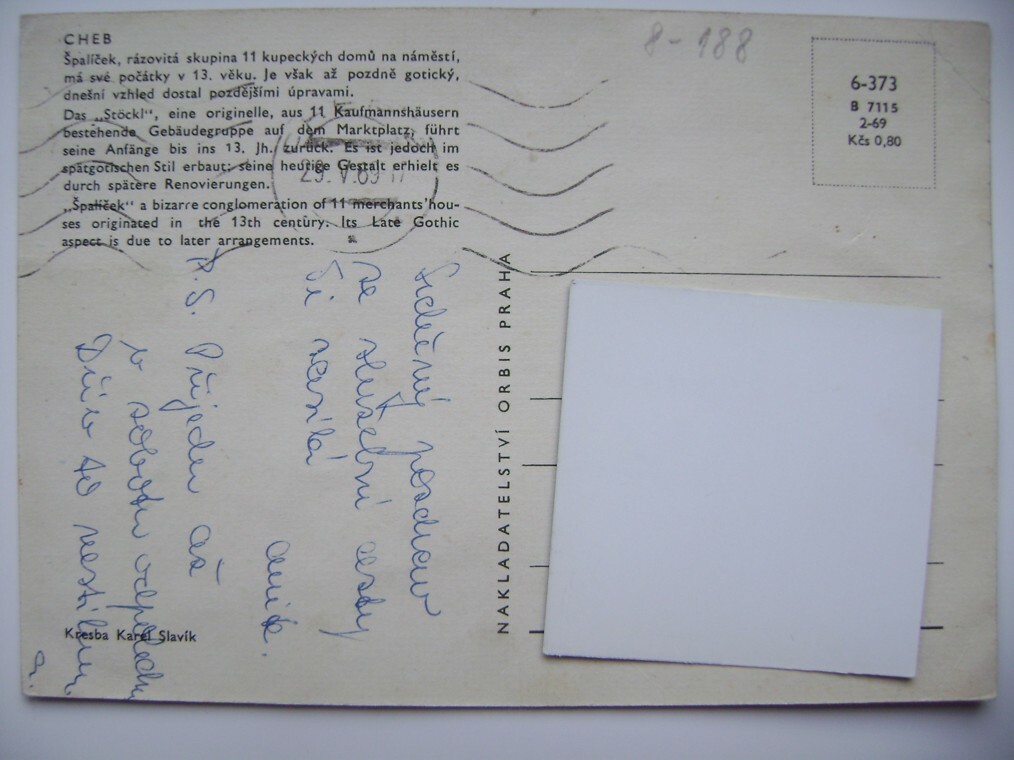 CHEB
Špalíček, rázovitá skupina 11 kupeckých domů na náměstí,
má své počátky v 13. věku. Je však až pozdně gotický,
dnešní vzhled dostal pozdějšími úpravami.
Das „Stöckl“, eine originelle, aus 11 Kaufmannshäusern
bestehende Gebäudegruppe auf dem Marktplatz, führt
seine Anfänge bis ins 13. Jh. zurück. Es ist jedoch im
spätgotischen Stil erbaut; seine heutige Gestalt erhielt es
durch spätere Renovierungen.
„Špalíček“ a bizarre conglomeration of 11 merchants'hou-
ses originated in the 13th century. Its Late Gothic
aspect is due to later arrangements.
8-188
6-373
B 7115
2-69
Kčs 0,80
29.V.69
NAKLADATELSTVÍ ORBIS PRAHA
Srdečný pozdrav
ze služební cesty
Ti zasílá
P.S. Přijedu až
v sobotu odpoledne
Dřív to nestihnu.
Kresba Karel Slavík